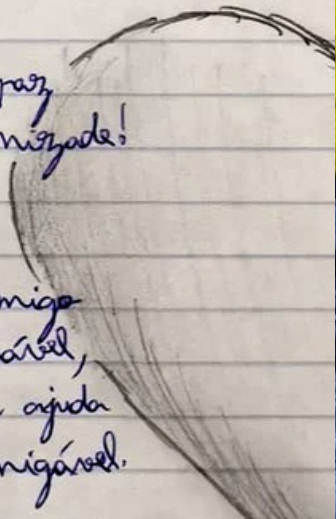 paz
mizade!
migo
ável,
ajuda
migável.